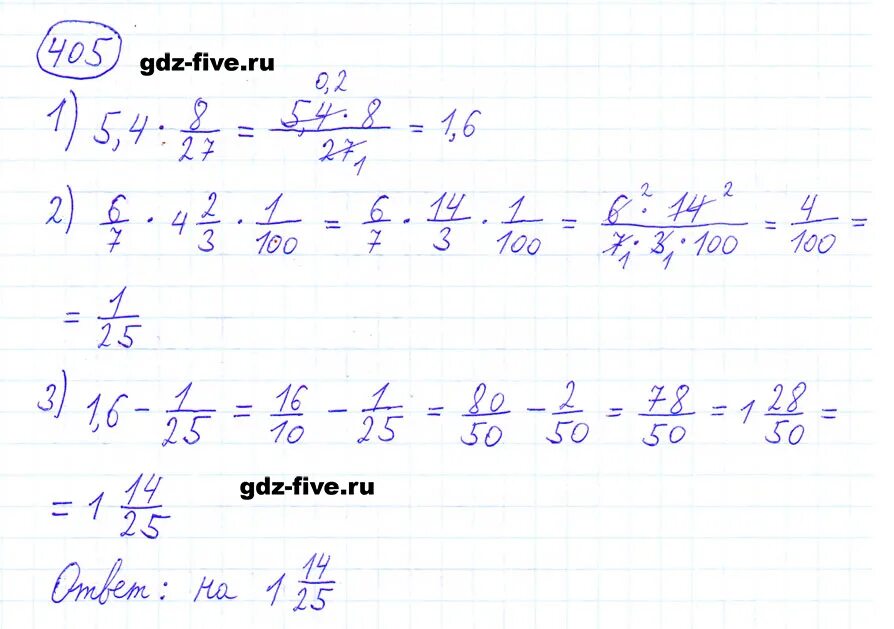 405
gdz-five.ru
1) 5,4 : 8/27 = 5,4 · 8 / 27 = 1,6
0,2
1
2) 6/7 · 4 2/3 · 1/100 = 6/7 · 14/3 · 1/100 = 6 2 · 14 2 / 7 1 · 3 1 · 100 = 4/100 =
= 1/25
3) 1,6 - 1/25 = 16/10 - 1/25 = 80/50 - 2/50 = 78/50 = 1 28/50 =
= 1 14/25
gdz-five.ru
Ответ: на 1 14/25